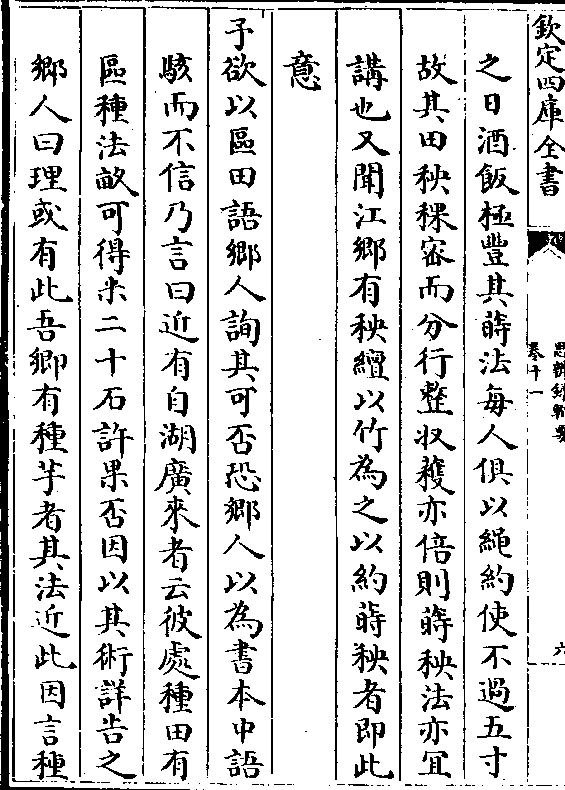 欽定四庫全書
思辨錄輯要
卷十一
六
之日酒飯極豐其蒔法每人俱以繩約使不過五寸
故其田秧稞密而分行整收穫亦倍則蒔秧法亦冝
講也又聞江鄉有秧繵以竹為之以約蒔秧者即此
意
予欲以區田語鄉人詢其可否恐鄉人以為書本中語
駭而不信乃言曰近有自湖廣來者云彼處種田有
區種法畝可得米二十石許果否因以其術詳告之
鄉人曰理或有此吾鄉有種芋者其法近此因言種